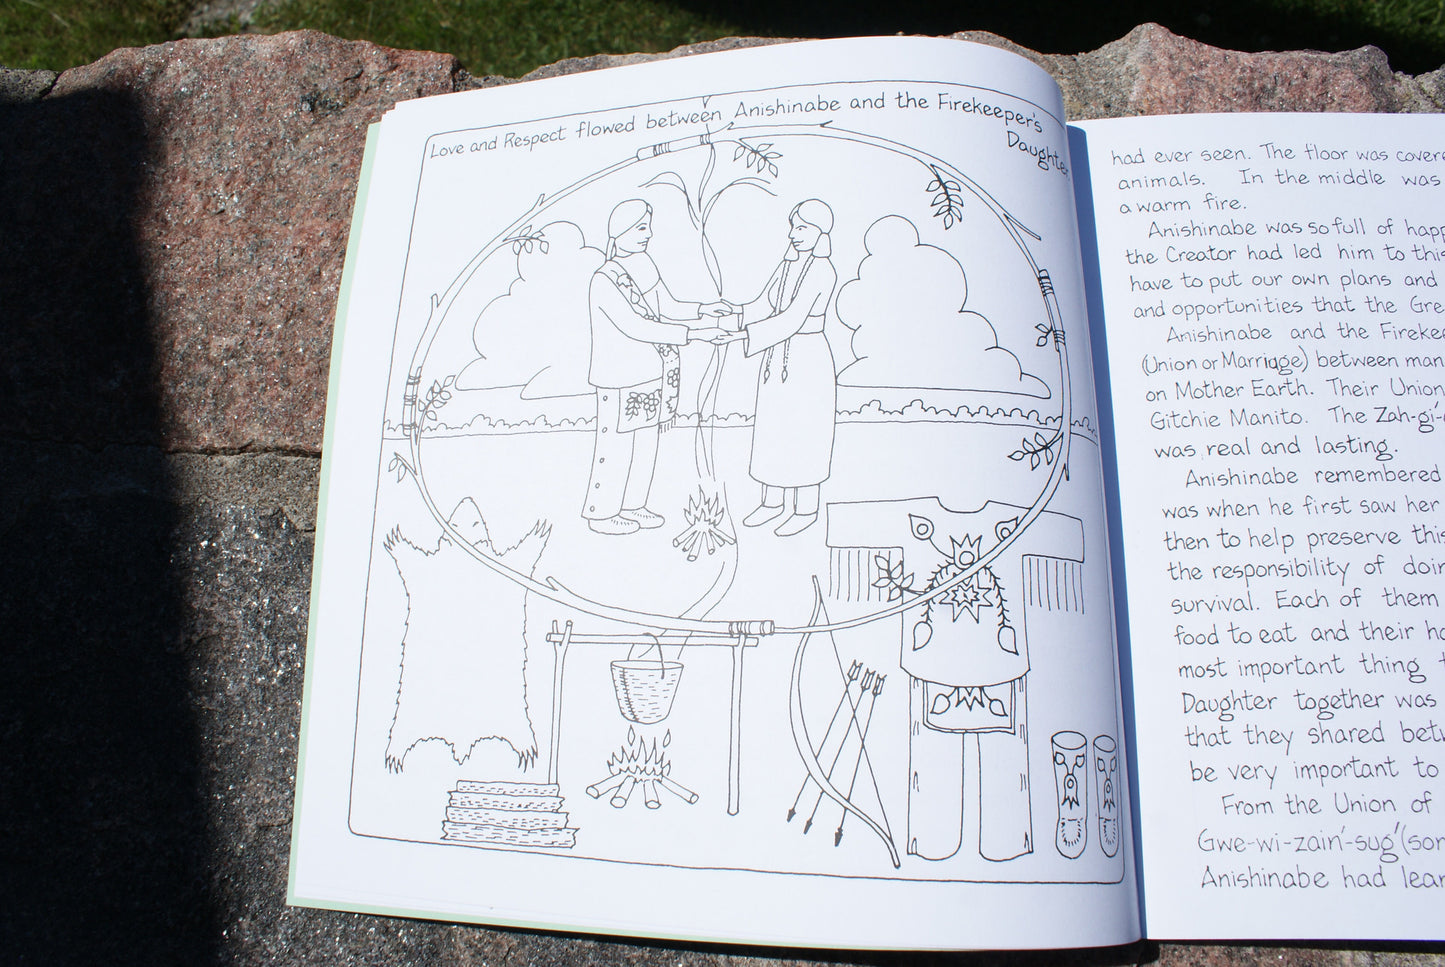 Love and Respect flowed between Anishinabe and the Firekeeper's
Daughter.
had ever seen. The floor was covere
animals. In the middle was
a warm fire.
Anishinabe was so full of happ
the Creator had led him to this
have to put our own plans and
and opportunities that the Gre
Anishinabe and the Fireke
(Union or Marriage) between man
on Mother Earth. Their Union
Gitchie Manito. The Zah-gi'-
was real and lasting.
Anishinabe remembered
was when he first saw her
then to help preserve this
the responsibility of doin
survival. Each of them
food to eat and their ho
most important thing
Daughter together was
that they shared betw
be very important to
From the Union of
Gwe-wi-zain'-sug' (son
Anishinabe had lear